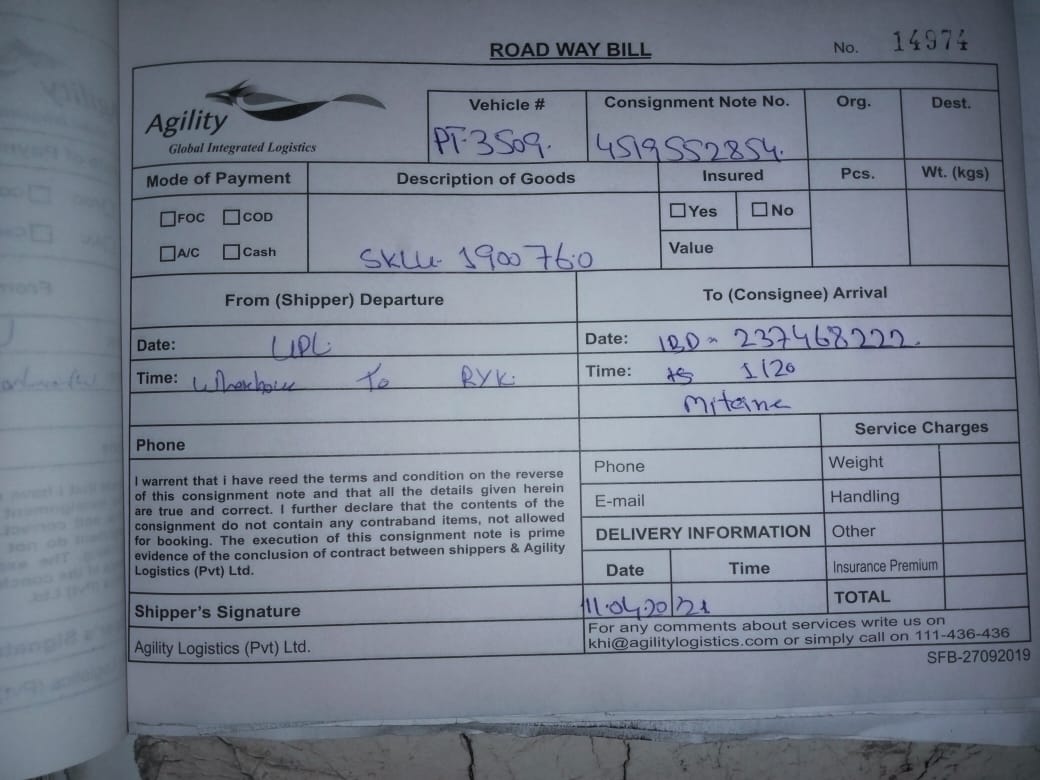 ROAD WAY BILL
No. 14974
Agility
Global Integrated Logistics
Vehicle #
PT-3509.
Consignment Note No.
4519552854.
Org.
Dest.
Mode of Payment
Description of Goods
Insured
Pcs.
Wt. (kgs)
FOC COD
Yes No
A/C Cash
Value
1900760
From (Shipper) Departure
To (Consignee) Arrival
Date: UPL
Date: 237468222.
Time: To RYK
Time: 1/20
Phone
Service Charges
I warrent that i have reed the terms and condition on the reverse
of this consignment note and that all the details given herein
are true and correct. I further declare that the contents of the
consignment do not contain any contraband items, not allowed
for booking. The execution of this consignment note is prime
evidence of the conclusion of contract between shippers & Agility
Logistics (Pvt) Ltd.
Phone
Weight
E-mail
Handling
DELIVERY INFORMATION
Other
Date
Time
Insurance Premium
Shipper's Signature
11.04.2021
TOTAL
Agility Logistics (Pvt) Ltd.
For any comments about services write us on
khi@agilitylogistics.com or simply call on 111-436-436
SFB-27092019